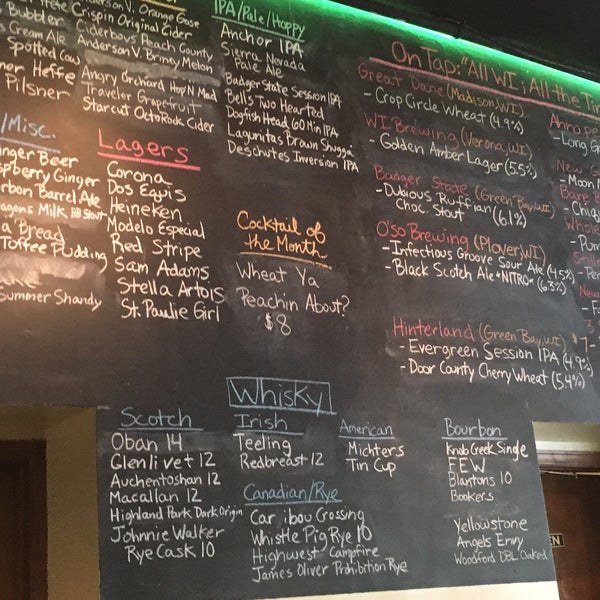 Crispin Original Cider
Ciderboys Peach County
Anderson V. Briney Melon
Angry Orchard Hop N Mad
Traveler Grapefruit
Starcut OctoRock Cider
V. Orange Gose
Bubbler
Cream Ale
Spotted Cow
Heffe
Pilsner
/Misc.
Ginger Beer
Raspberry Ginger
Bourbon Barrel Ale
Dragons Milk BB Stout
Bread
Toffee Pudding
Summer Shandy
Lagers
Corona
Dos Equis
Heineken
Modelo Especial
Red Stripe
Sam Adams
Stella Artois
St. Paulie Girl
IPA/Pale/Hoppy
Anchor IPA
Sierra Nevada
Pale Ale
Badger State Session IPA
Bell's Two Hearted
Dogfish Head 60 Min IPA
Lagunitas Brown Shugga
Deschutes Inversion IPA
Cocktail of
the Month
Wheat Ya
Peachin About?
$8
On Tap: "All WI, All the Tim
Great Dane (Madison, WI)
- Crop Circle Wheat (4.9%)
WI Brewing (Verona, WI)
- Golden Amber Lager (5.5%)
Badger State (Green Bay, WI)
- Dubious Ruffian
Choc. Stout (6.1%)
O'so Brewing (Plover, WI)
- Infectious Groove Sour Ale (4.5%)
- Black Scotch Ale *NITRO* (6.3%)
Hinterland (Green Bay, WI)
- Evergreen Session IPA (4.9%)
- Door County Cherry Wheat (5.4%)
- Long
- Moon
Bare B
Whole
- Pum
$7-
Whisky
Scotch
Oban 14
Glenlivet 12
Auchentoshan 12
Macallan 12
Highland Park Dark Origin
Johnnie Walker
Rye Cask 10
Irish
Teeling
Redbreast 12
Canadian/Rye
Caribou Crossing
Whistle Pig Rye 10
Highwest Campfire
James Oliver Prohibition Rye
American
Michters
Tin Cup
Bourbon
Knob Creek Single
FEW
Blantons 10
Bookers
Yellowstone
Angels Envy
Woodford DBL Oaked